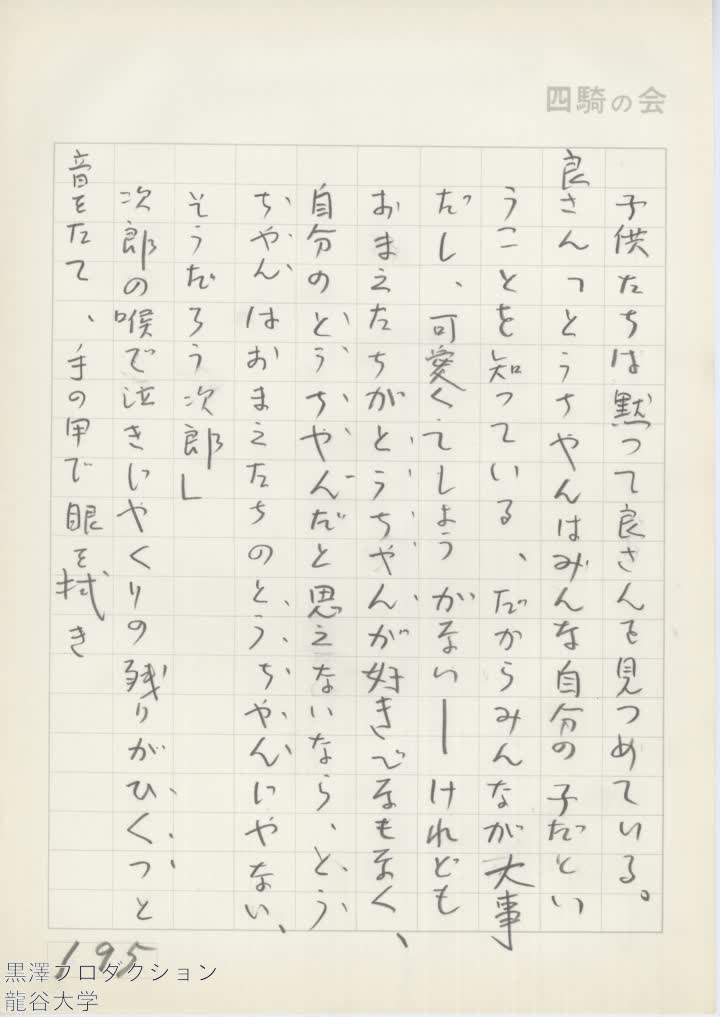 四騎の会
子供たちは黙って良さんを見つめている。
良さん「とうちやんはみんな自分の子だとい
うことを知っている、だからみんなが大事
だし、可愛くてしようがない──けれども
おまえたちがとうちやんが好きでなもなく、
自分のとうちやんだと思えないなら、とう
ちやんはおまえたちのとうちやんじやない、
そうだろう次郎」
次郎の喉で泣きじやくりの残りがひくっと
音をたて、手の甲で眼を拭き
195
黒澤プロダクション
龍谷大学